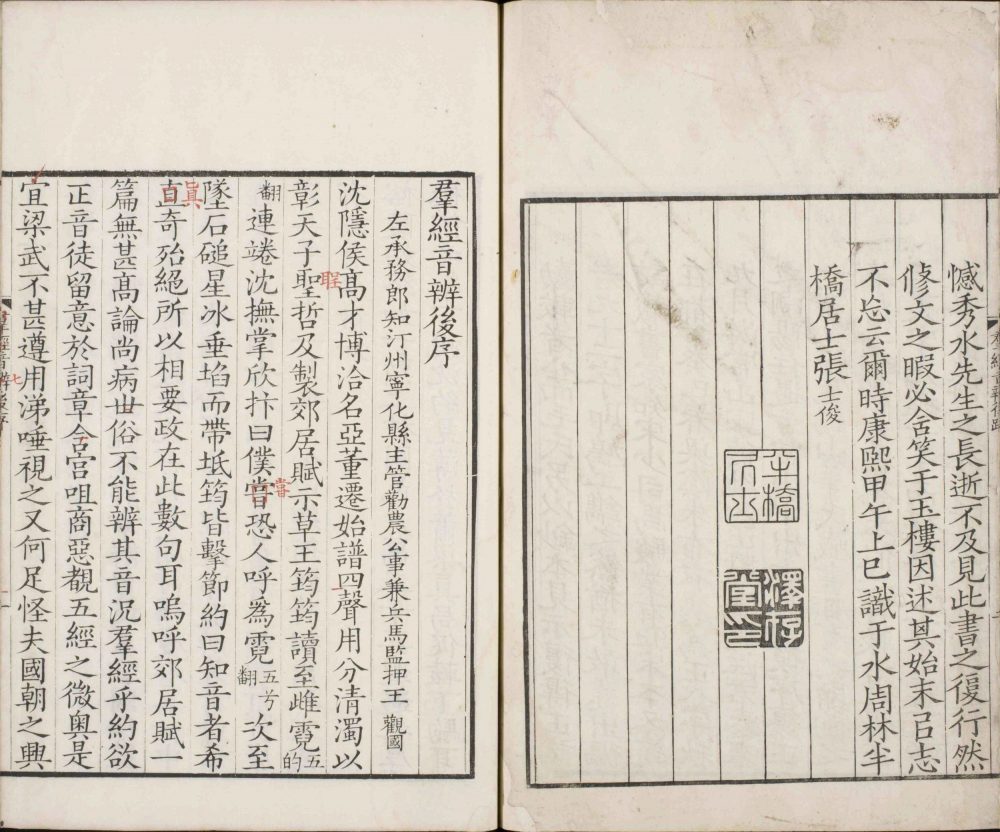 憾秀水先生之長逝不及見此書之復行然
修文之暇必含笑于玉樓因述其始末㠯志
不忘云爾時康熙甲午上巳識于水周林半
橋居士張士俊
半橋
居士
澤存
堂印
羣經音辨後序
左承務郎知汀州寧化縣主管勸農公事兼兵馬監押王觀國
沈隱侯高才博洽名亞董遷始譜四聲用分清濁以
彰天子聖哲及製郊居賦示草王筠筠讀至雌霓五的
翻連踡沈撫掌欣抃曰僕嘗恐人呼為霓五兮翻次至
墜石磓星冰垂埳而帶坻筠皆擊節約曰知音者希
真奇殆絕所以相要政在此數句耳嗚呼郊居賦一
篇無甚高論尚病世俗不能辨其音況羣經乎約欲
正音徒留意於詞章含宮咀商惡覩五經之微奧是
宜梁武不甚遵用涕唾視之又何足怪夫國朝之興
聖
嘗
真
七
羣經音辨後序